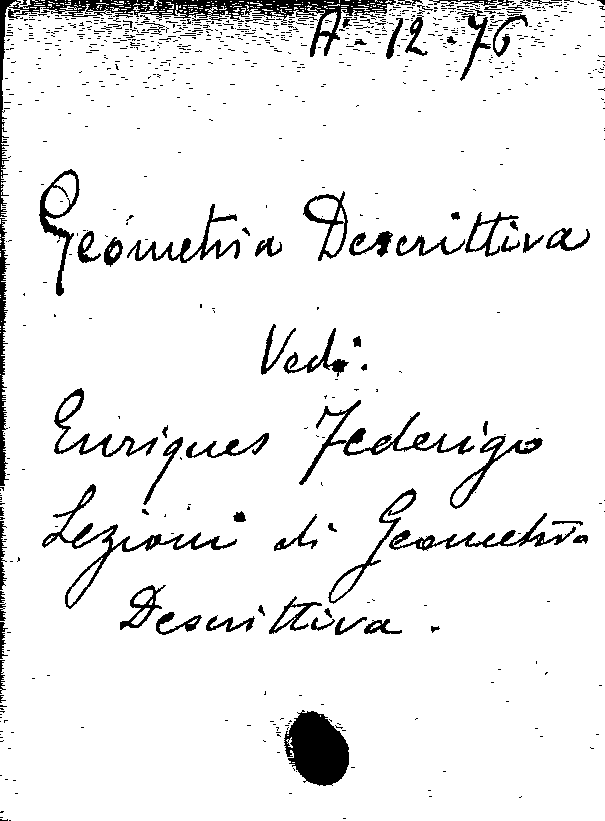 A'-12-76
Geometria Descrittiva
Vedi:
Enriques Federigo
Lezioni di Geometria
Descrittiva.